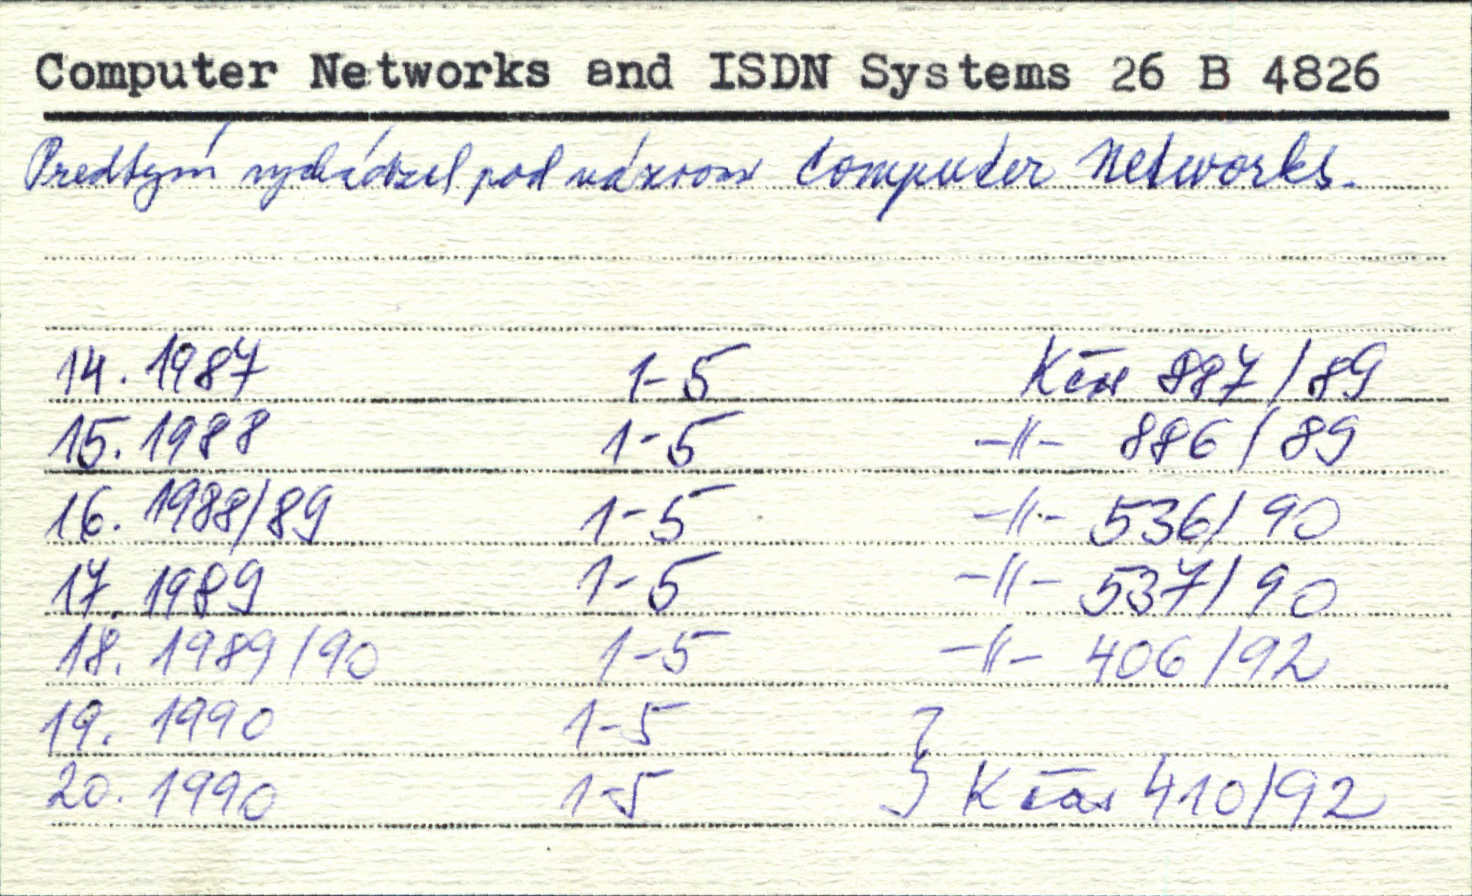 Computer Networks and ISDN Systems 26 B 4826
Predtým vychádzal pod názvom Computer Networks.
14. 1987 1-5 Kčas 887/89
15. 1988 1-5 -"- 886/89
16. 1988/89 1-5 -"- 536/90
17. 1989 1-5 -"- 537/90
18. 1989/90 1-5 -"- 406/92
19. 1990 1-5 }
20. 1990 1-5 } Kčas 410/92